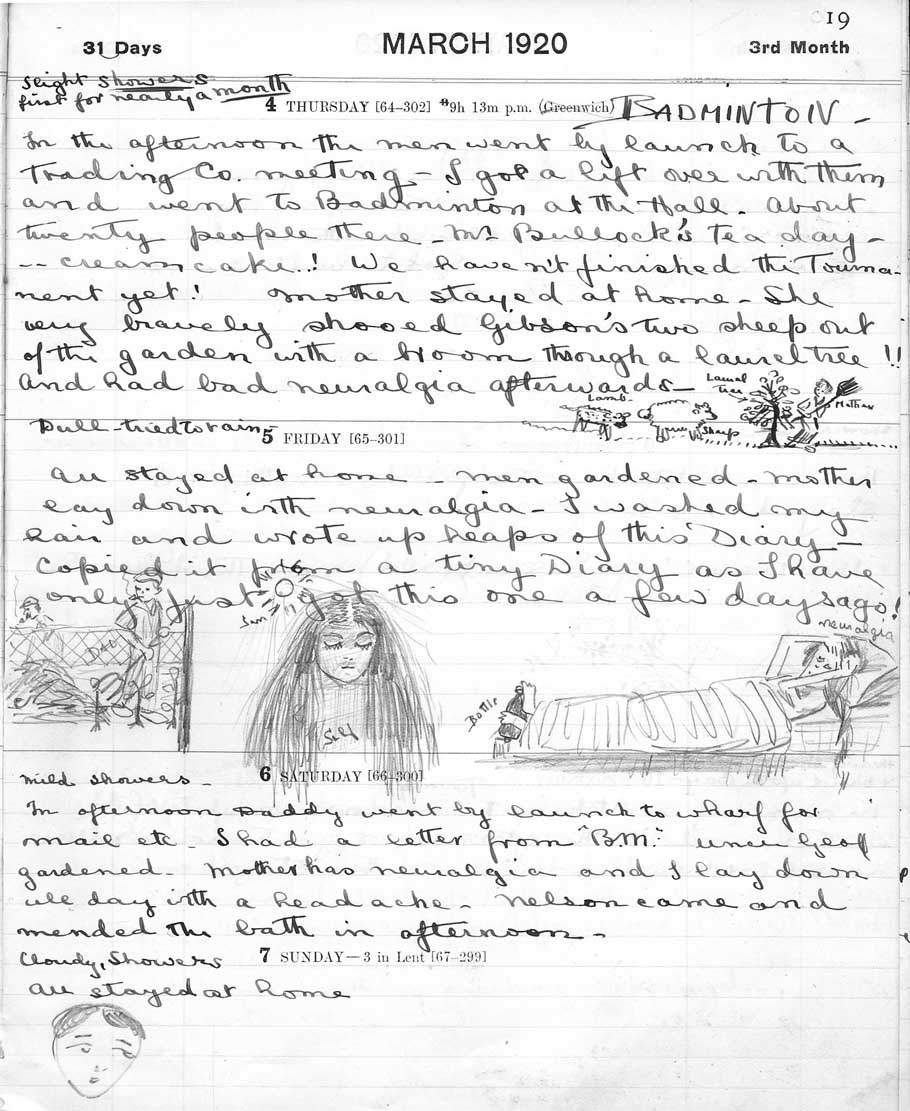 19
31 Days MARCH 1920 3rd Month
Slight showers
first for nearly a month
4 THURSDAY [64–302] 9h 13m p.m. (Greenwich) BADMINTON –
In the afternoon the men went by launch to a
Trading Co. meeting – I got a lift over with them
and went to Badminton at the Hall. About
twenty people there – Mrs Bullock's tea day –
-- cream cake..! We haven't finished the Tourna-
ment yet! Mother stayed at home – She
very bravely shooed Gibson's two sheep out
of the garden with a broom through a laurel tree !!
and had bad neuralgia afterwards –
Lamb
Sheep
Laurel
tree
Mother
Dull – tried to rain –
5 FRIDAY [65–301]
All stayed at home – men gardened – mother
lay down with neuralgia – I washed my
hair and wrote up heaps of this Diary –
Copied it from a tiny Diary as I have
only just got this one a few days ago!
DAD
Sun
Self
Bottle
neuralgia
mild showers –
6 SATURDAY [66–300]
In afternoon Daddy went by launch to wharf for
mail etc – I had a letter from "B.M." Uncle Geof
gardened – Mother has neuralgia and I lay down
all day with a headache – Nelson came and
mended the bath in afternoon –
Cloudy, Showers
7 SUNDAY—3 in Lent [67–299]
All stayed at home